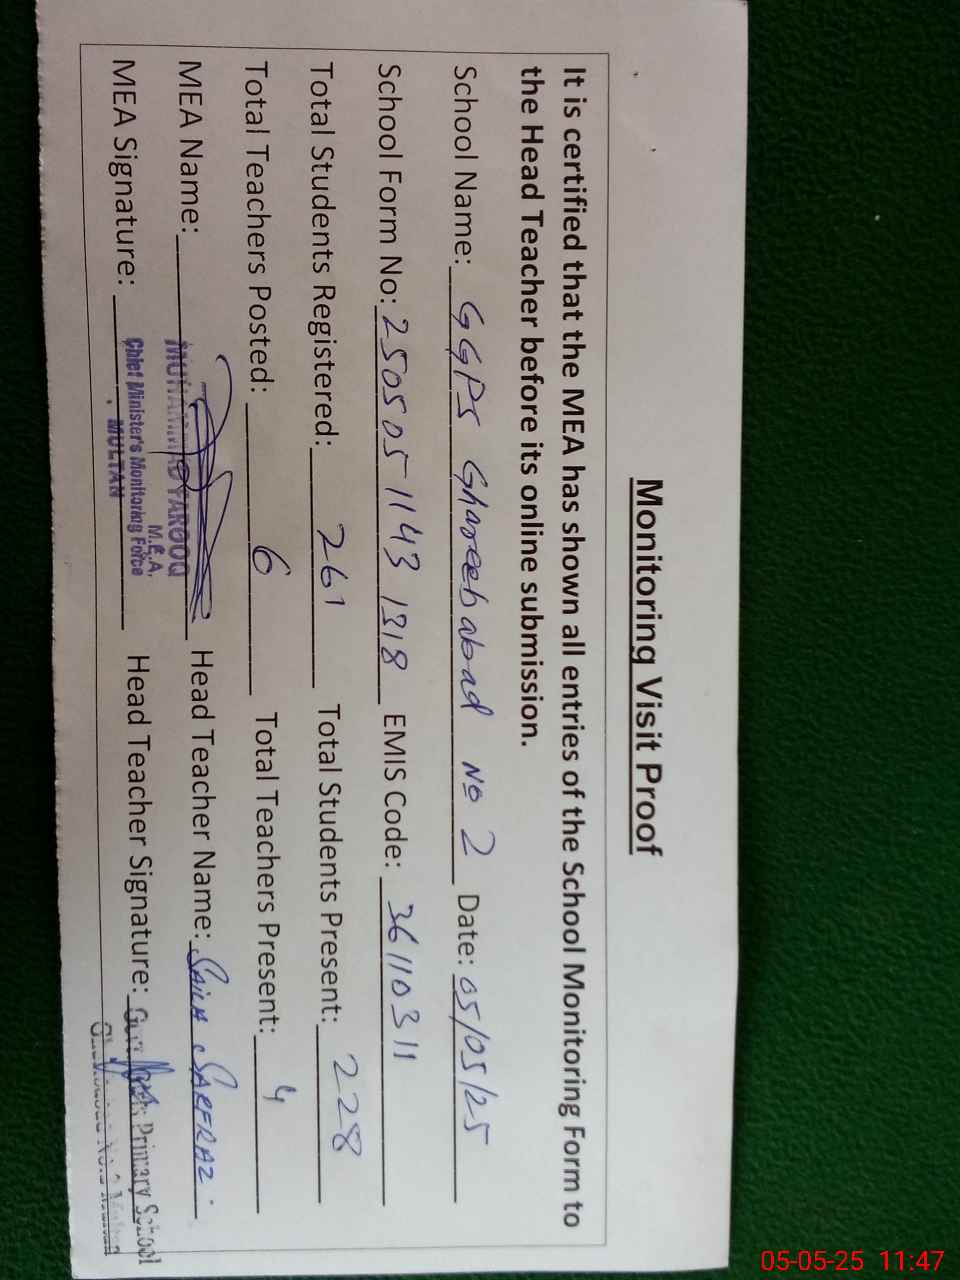 Monitoring Visit Proof
It is certified that the MEA has shown all entries of the School Monitoring Form to
the Head Teacher before its online submission.
School Name: GGPS Ghareebabad No 2 Date: 05/05/25
School Form No: 250505 1143 1318 EMIS Code: 36110311
Total Students Registered: 261 Total Students Present: 228
Total Teachers Posted: 6 Total Teachers Present: 4
MEA Name: MUHAMMAD FAROOQ Head Teacher Name: SAILA SARFRAZ
M.E.A.
MEA Signature: Chief Minister's Monitoring Force Head Teacher Signature: Primary School
MULTAN No.2 Multan
05-05-25 11:47